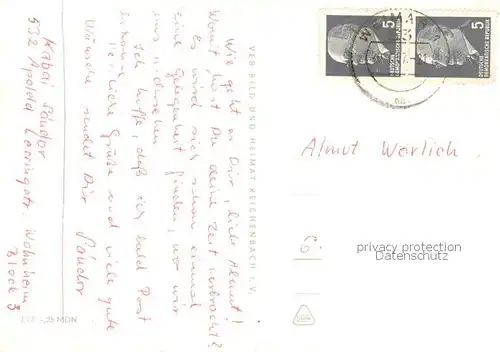 Wie geht es Dir, liebe Almut!
Womit hast Du deine Zeit verbracht?
Es wird sich schon einmal
eine Gelegenheit finden, wo wir
uns wiedersehen.
Ich hoffe, daß ich bald Post
bekomme.
Herzliche Grüße und viele gute
Wünsche sendet Dir
Sándor
Kabai Sándor
532 Apolda Lessingstr. Wohnheim
Block 3
VEB BILD UND HEIMAT REICHENBACH i. V.
MDN
5
DEUTSCHE
DEMOKRATISCHE REPUBLIK
5
DEUTSCHE
DEMOKRATISCHE REPUBLIK
Almut Werlich
6.
privacy protection
Datenschutz